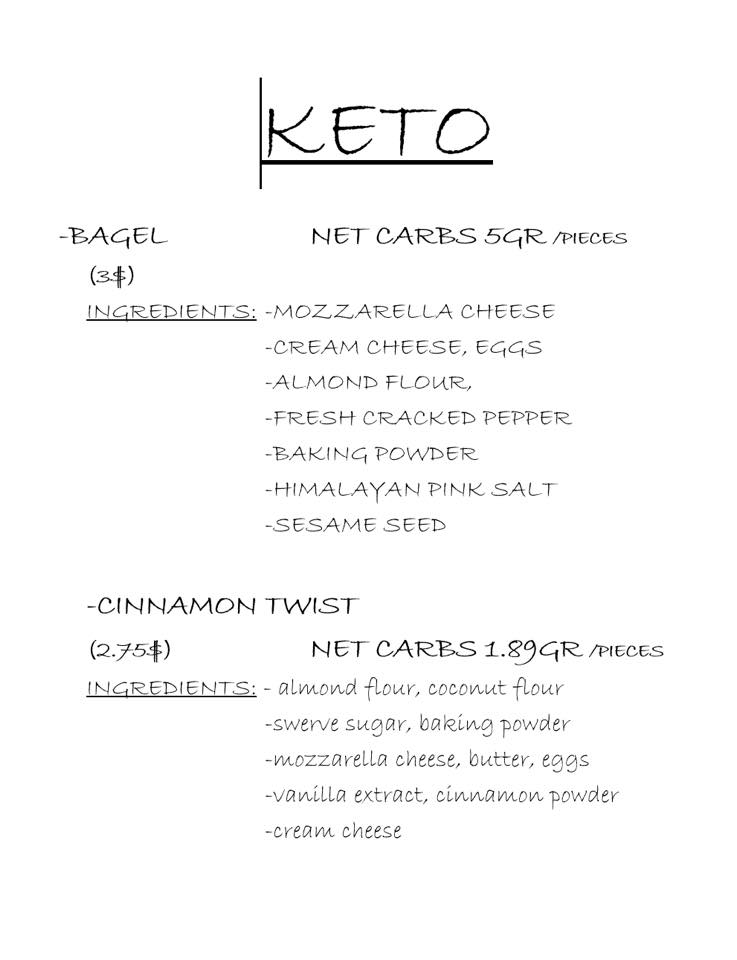 KETO
-BAGEL NET CARBS 5GR /PIECES
(3$)
INGREDIENTS: -MOZZARELLA CHEESE
-CREAM CHEESE, EGGS
-ALMOND FLOUR,
-FRESH CRACKED PEPPER
-BAKING POWDER
-HIMALAYAN PINK SALT
-SESAME SEED
-CINNAMON TWIST
(2.75$) NET CARBS 1.89GR /PIECES
INGREDIENTS: - almond flour, coconut flour
-swerve sugar, baking powder
-mozzarella cheese, butter, eggs
-vanilla extract, cinnamon powder
-cream cheese